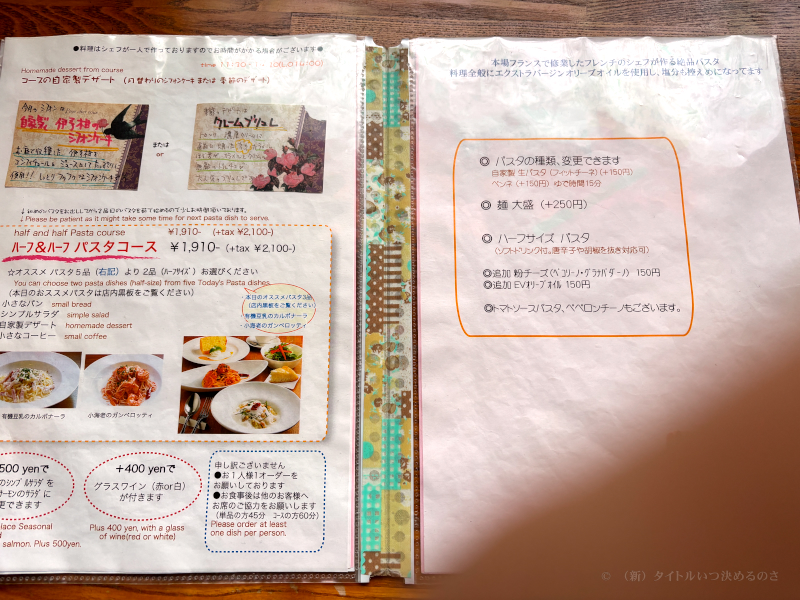 ●料理はシェフが一人で作っておりますのでお時間がかかる場合がございます●
Homemade dessert from course
コースの自家製デザート (日替わりのシフォンケーキ または 季節のデザート)
自家製 伊予柑の
シフォンケーキ
または
or
クレームブリュレ
↓Please be patient as it might take some time for next pasta dish to serve.
half and half Pasta course ¥1,910- (+tax ¥2,100-)
ハーフ&ハーフ パスタコース ¥1,910- (+tax ¥2,100-)
☆オススメ パスタ5品(右記)より2品(ハーフサイズ) お選びください
You can choose two pasta dishes (half-size) from five Today's Pasta dishes.
(本日のおススメパスタは店内黒板をご覧ください)
小さなパン small bread
シンプルサラダ simple salad
自家製デザート homemade dessert
小さなコーヒー small coffee
・本日のオススメパスタ3品
(店内黒板をご覧ください)
・有機豆乳のカルボナーラ
・小海老のガンベロッティ
有機豆乳のカルボナーラ
小海老のガンベロッティ
500 yenで
のシンプルサラダを
サーモンのサラダに
更できます
lace Seasonal
salmon. Plus 500yen.
+400 yenで
グラスワイン(赤or白)
が付きます
Plus 400 yen, with a glass
of wine(red or white)
申し訳ございません
●お1人様1オーダーを
お願いしております
●お食事後は他のお客様へ
お席のご協力をお願いします
(単品の方45分 コースの方60分)
Please order at least
one dish per person.
本場フランスで修業したフレンチのシェフが作る絶品パスタ
料理全般にエクストラバージンオリーブオイルを使用し、塩分も控えめになってます
◎ パスタの種類、変更できます
自家製 生パスタ(フィットチーネ)(+150円)
ペンネ(+150円) ゆで時間15分
◎ 麺 大盛(+250円)
◎ ハーフサイズ パスタ
(ソフトドリンク付。唐辛子や胡椒を抜き対応可)
◎追加 粉チーズ(ペコリーノ・グラナパダーノ) 150円
◎追加 EVオリーブオイル 150円
◎トマトソースパスタ、ペペロンチーノもございます。
© (新)タイトルいつ決めるのさ